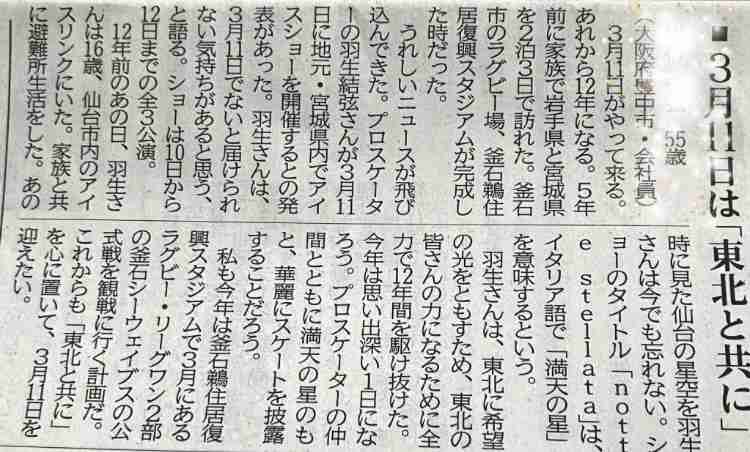 ■3月11日は「東北と共に」
55歳
（大阪府豊中市・会社員）
3月11日がやって来る。
あれから12年になる。5年
前に家族で岩手県と宮城県
を2泊3日で訪れた。釜石
市のラグビー場、釜石鵜住
居復興スタジアムが完成し
た時だった。
うれしいニュースが飛び
込んできた。プロスケータ
ーの羽生結弦さんが3月11
日に地元・宮城県内でアイ
スショーを開催するとの発
表があった。羽生さんは、
3月11日でないと届けられ
ない気持ちがあると思う、
と語る。ショーは10日から
12日までの全3公演。
12年前のあの日、羽生さ
んは16歳、仙台市内のアイ
スリンクにいた。家族と共
に避難所生活をした。あの
時に見た仙台の星空を羽生
さんは今でも忘れない。シ
ョーのタイトル「nott
e stellata」は、
イタリア語で「満天の星」
を意味するという。
羽生さんは、東北に希望
の光をともすため、東北の
皆さんの力になるために全
力で12年間を駆け抜けた。
今年は思い出深い1日にな
ろう。プロスケーターの仲
間とともに満天の星のも
と、華麗にスケートを披露
することだろう。
私も今年は釜石鵜住居復
興スタジアムで3月にある
ラグビー・リーグワン2部
の釜石シーウェイブスの公
式戦を観戦に行く計画だ。
これからも「東北と共に」
を心に置いて、3月11日を
迎えたい。